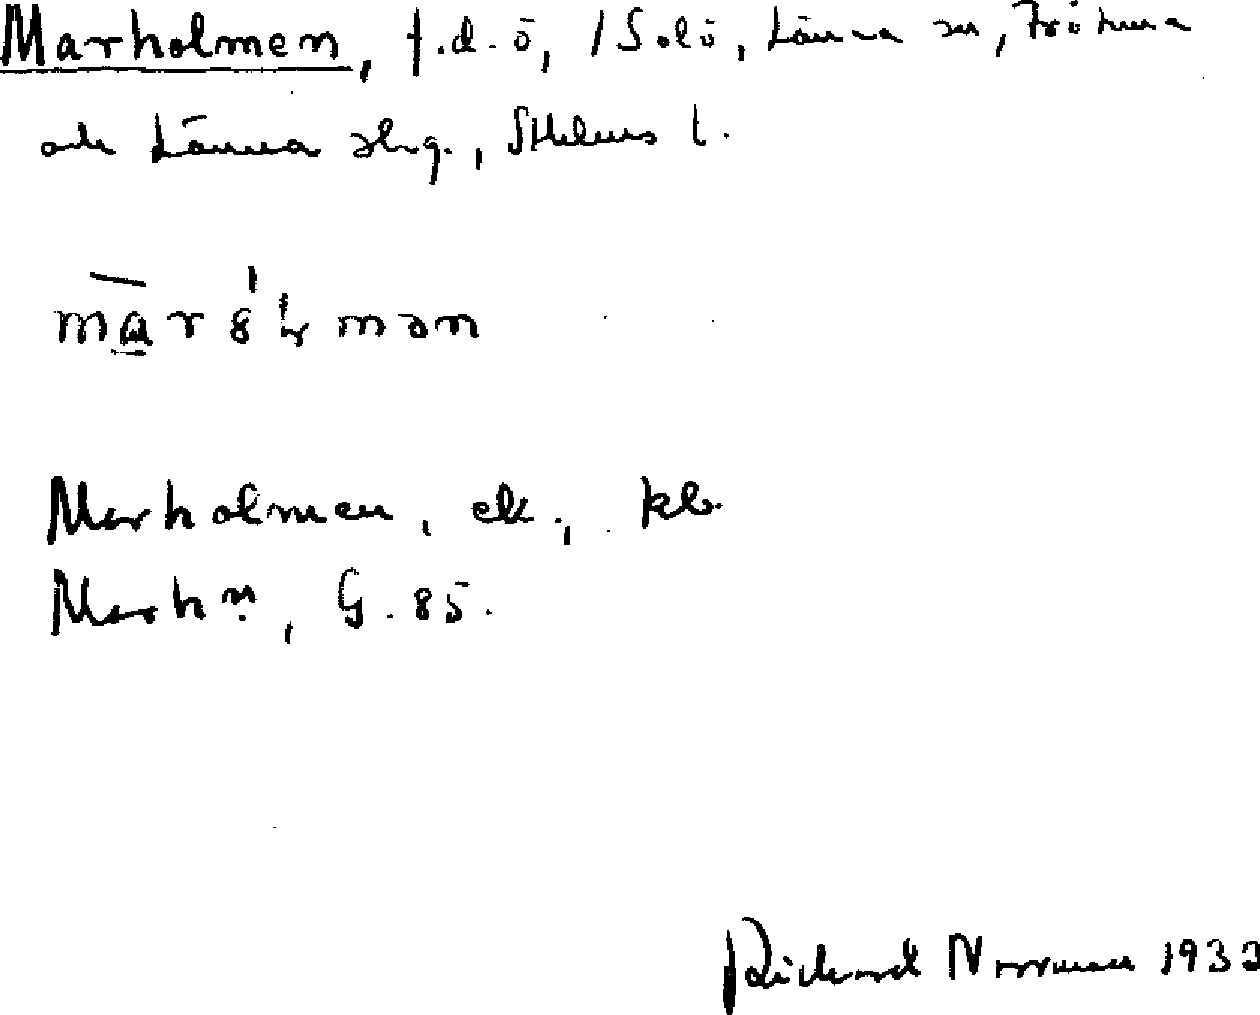 Marholmen, f.d. ö, /Solö, Länna sn, Frötuna
och Länna skg., Sthlms l.
Marholmen, ek., kb.
Marhn, G. 85.
Rickard Norrman 1933